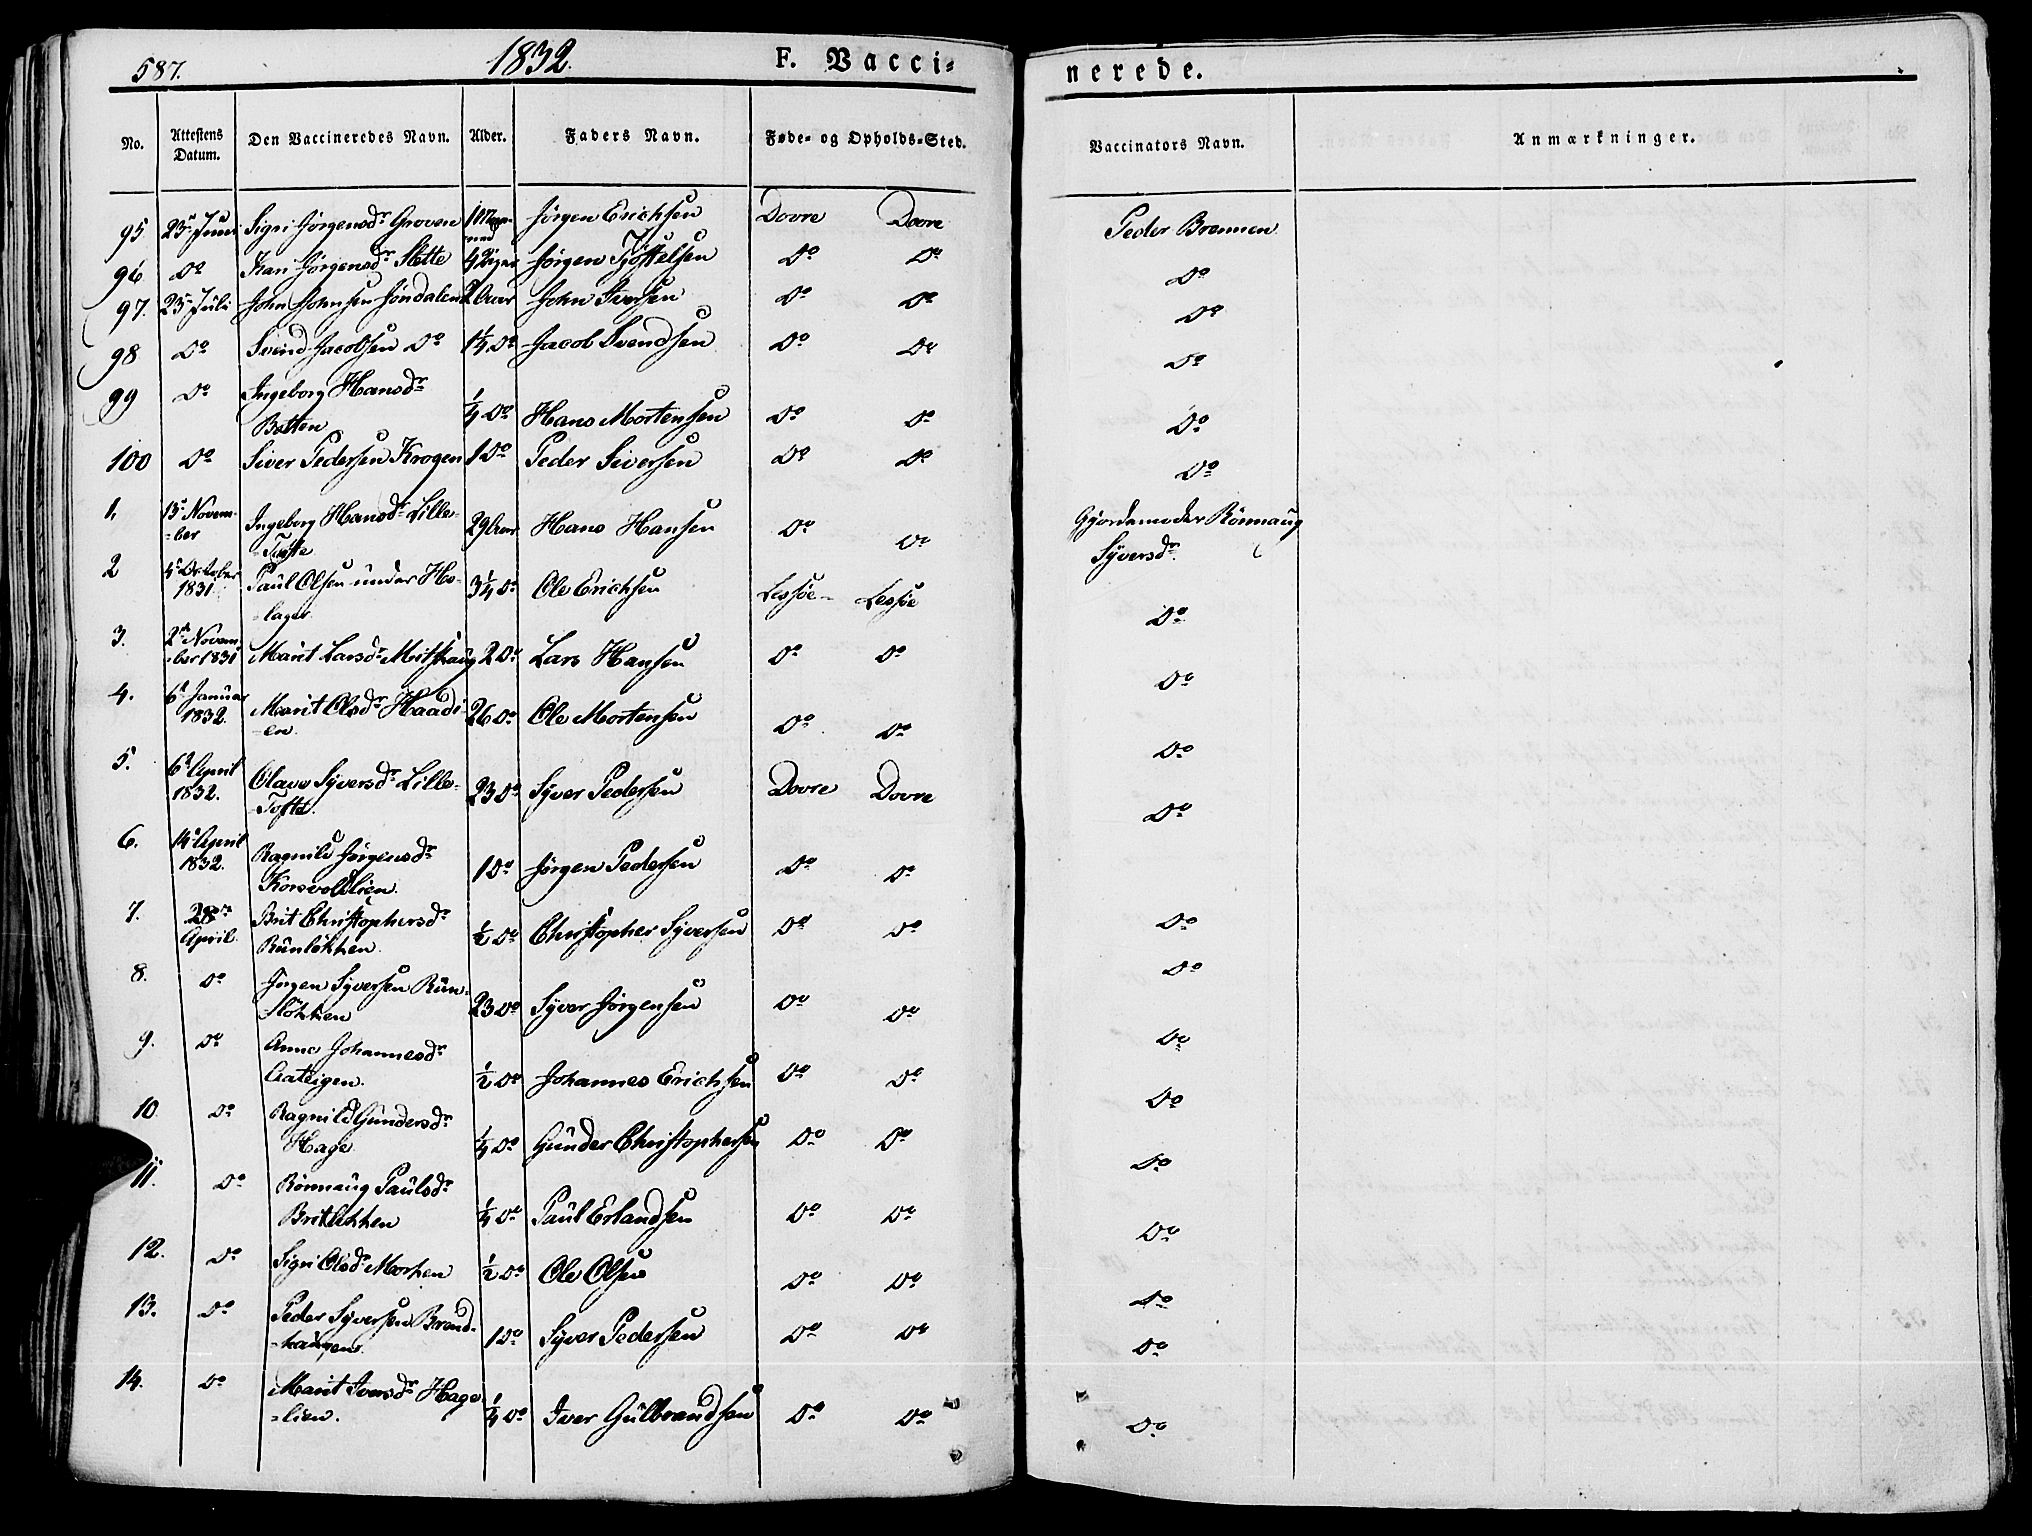 587.
1832.
F. Vacci-
nerede.
No. Attestens Datum. Den Vaccineredes Navn. Alder. Faders Navn. Føde- og Opholds-Sted. Vaccinators Navn. Anmærkninger.
95 23de Juni Sigri Jørgensdr Groven Jørgen Erichsen Dovre Dovre Peder Brennen
96 Do Kari Jørgensdr Slette Jørgen Tjøstelsen Do Do Do
97. 23de Juli John Johnsen Jøndalen 2 Do John Iversen Do Do Do
98 Do Svend Jacobsen Do 1¼ Do Jacob Svendsen Do Do Do
99 Do Ingeborg Hansdr
Botten ¼ Do Hans Mortensen Do Do Do
100 Do Siver Pedersen Krogen 1 Do Peder Siversen Do Do Do
1. 15de Novem-
-ber Ingeborg Hansdr Lille-
-Tofte 29 Hans Hansen Do Do Gjordemoder Rönnaug
Syversdr
2 4de October
1831 Paul Olsen under Ho-
-lager 3¼ Do Ole Erichsen Lessøe Lessøe Do
3. 2den Novem-
-ber 1831 Marit Larsdr 2 Do Lars Hansen Do Do Do
4. 6te Januar
1832. Marit Olsdr Haadi-
-en. 26 Do Ole Mortensen Do Do Do
5. 6te April
1832. Olava Syversdr Lille-
-Tofte. 23 Do Syver Pedersen Dovre Dovre Do
6. 14de April
1832. Ragnild Jørgensdr
Korsvoldlien. 1 Do Jørgen Pedersen Do Do Do
7. 28de
April. Brit Christophersdr
Rünlökken. ½ Do Christopher Syversen Do Do Do
8. Do Jörgen Syversen Rün-
-lökken 23 Do Syver Jørgensen Do Do Do
9. Do Anne Johannesdr
Aateigen. ½ Do Johannes Erichsen Do Do Do
10. Do Ragnild Gundersdr
Hage ¼ Do Gunder Christophersen Do Do Do
11. Do Rönnaug Paulsdr
Britlökken ¼ Do Paul Erlandsen Do Do Do
12. Do Sigri Olsdr Morken ½ Do Ole Olsen Do Do Do
13. Do Peder Syversen Brend-
-haugen. 1 Do Syver Pedersen Do Do Do
14. Do Marit Iversdr Hage-
-lien. ¼ Do Iver Gulbrandsen Do Do Do